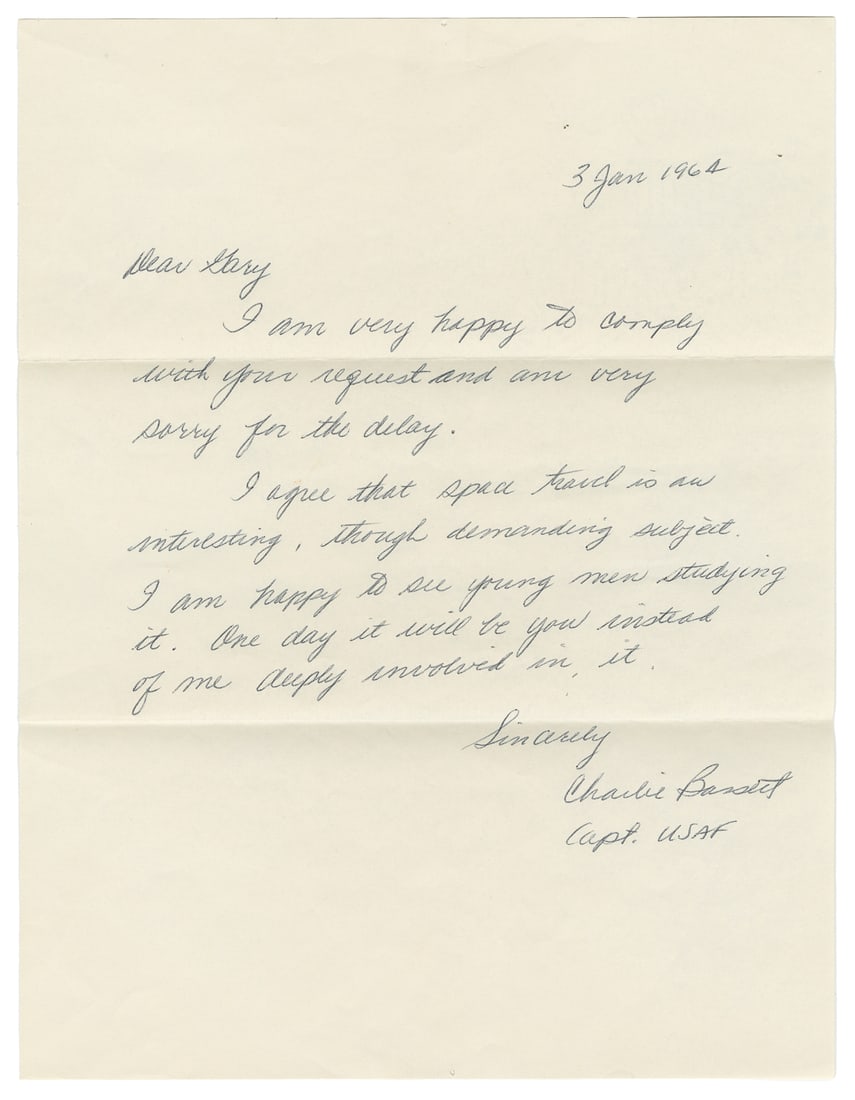 3 Jan 1964
Dear Gary
I am very happy to comply
with your request and am very
sorry for the delay.
I agree that space travel is an
interesting, though demanding subject.
I am happy to see young men studying
it. One day it will be you instead
of me deeply involved in it.
Sincerely
Charlie Bassett
Capt. USAF